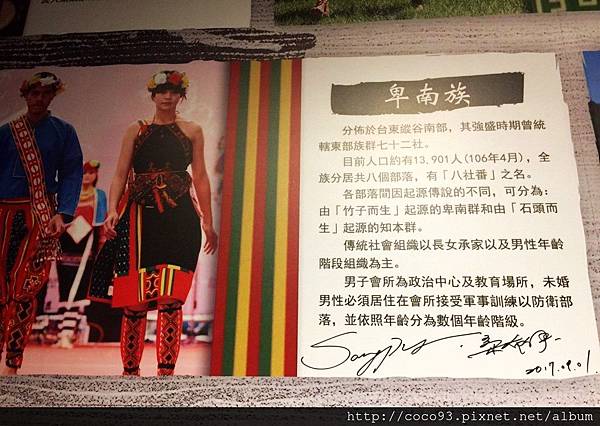 卑南族
分佈於台東縱谷南部，其強盛時期曾統
轄東部族群七十二社。
目前人口約有13,901人(106年4月)，全
族分居共八個部落，有「八社番」之名。
各部落間因起源傳說的不同，可分為：
由「竹子而生」起源的卑南群和由「石頭而
生」起源的知本群。
傳統社會組織以長女承家以及男性年齡
階段組織為主。
男子會所為政治中心及教育場所，未婚
男性必須居住在會所接受軍事訓練以防衛部
落，並依照年齡分為數個年齡階級。
2017.09.01.
http://coco93.pixnet.net/album